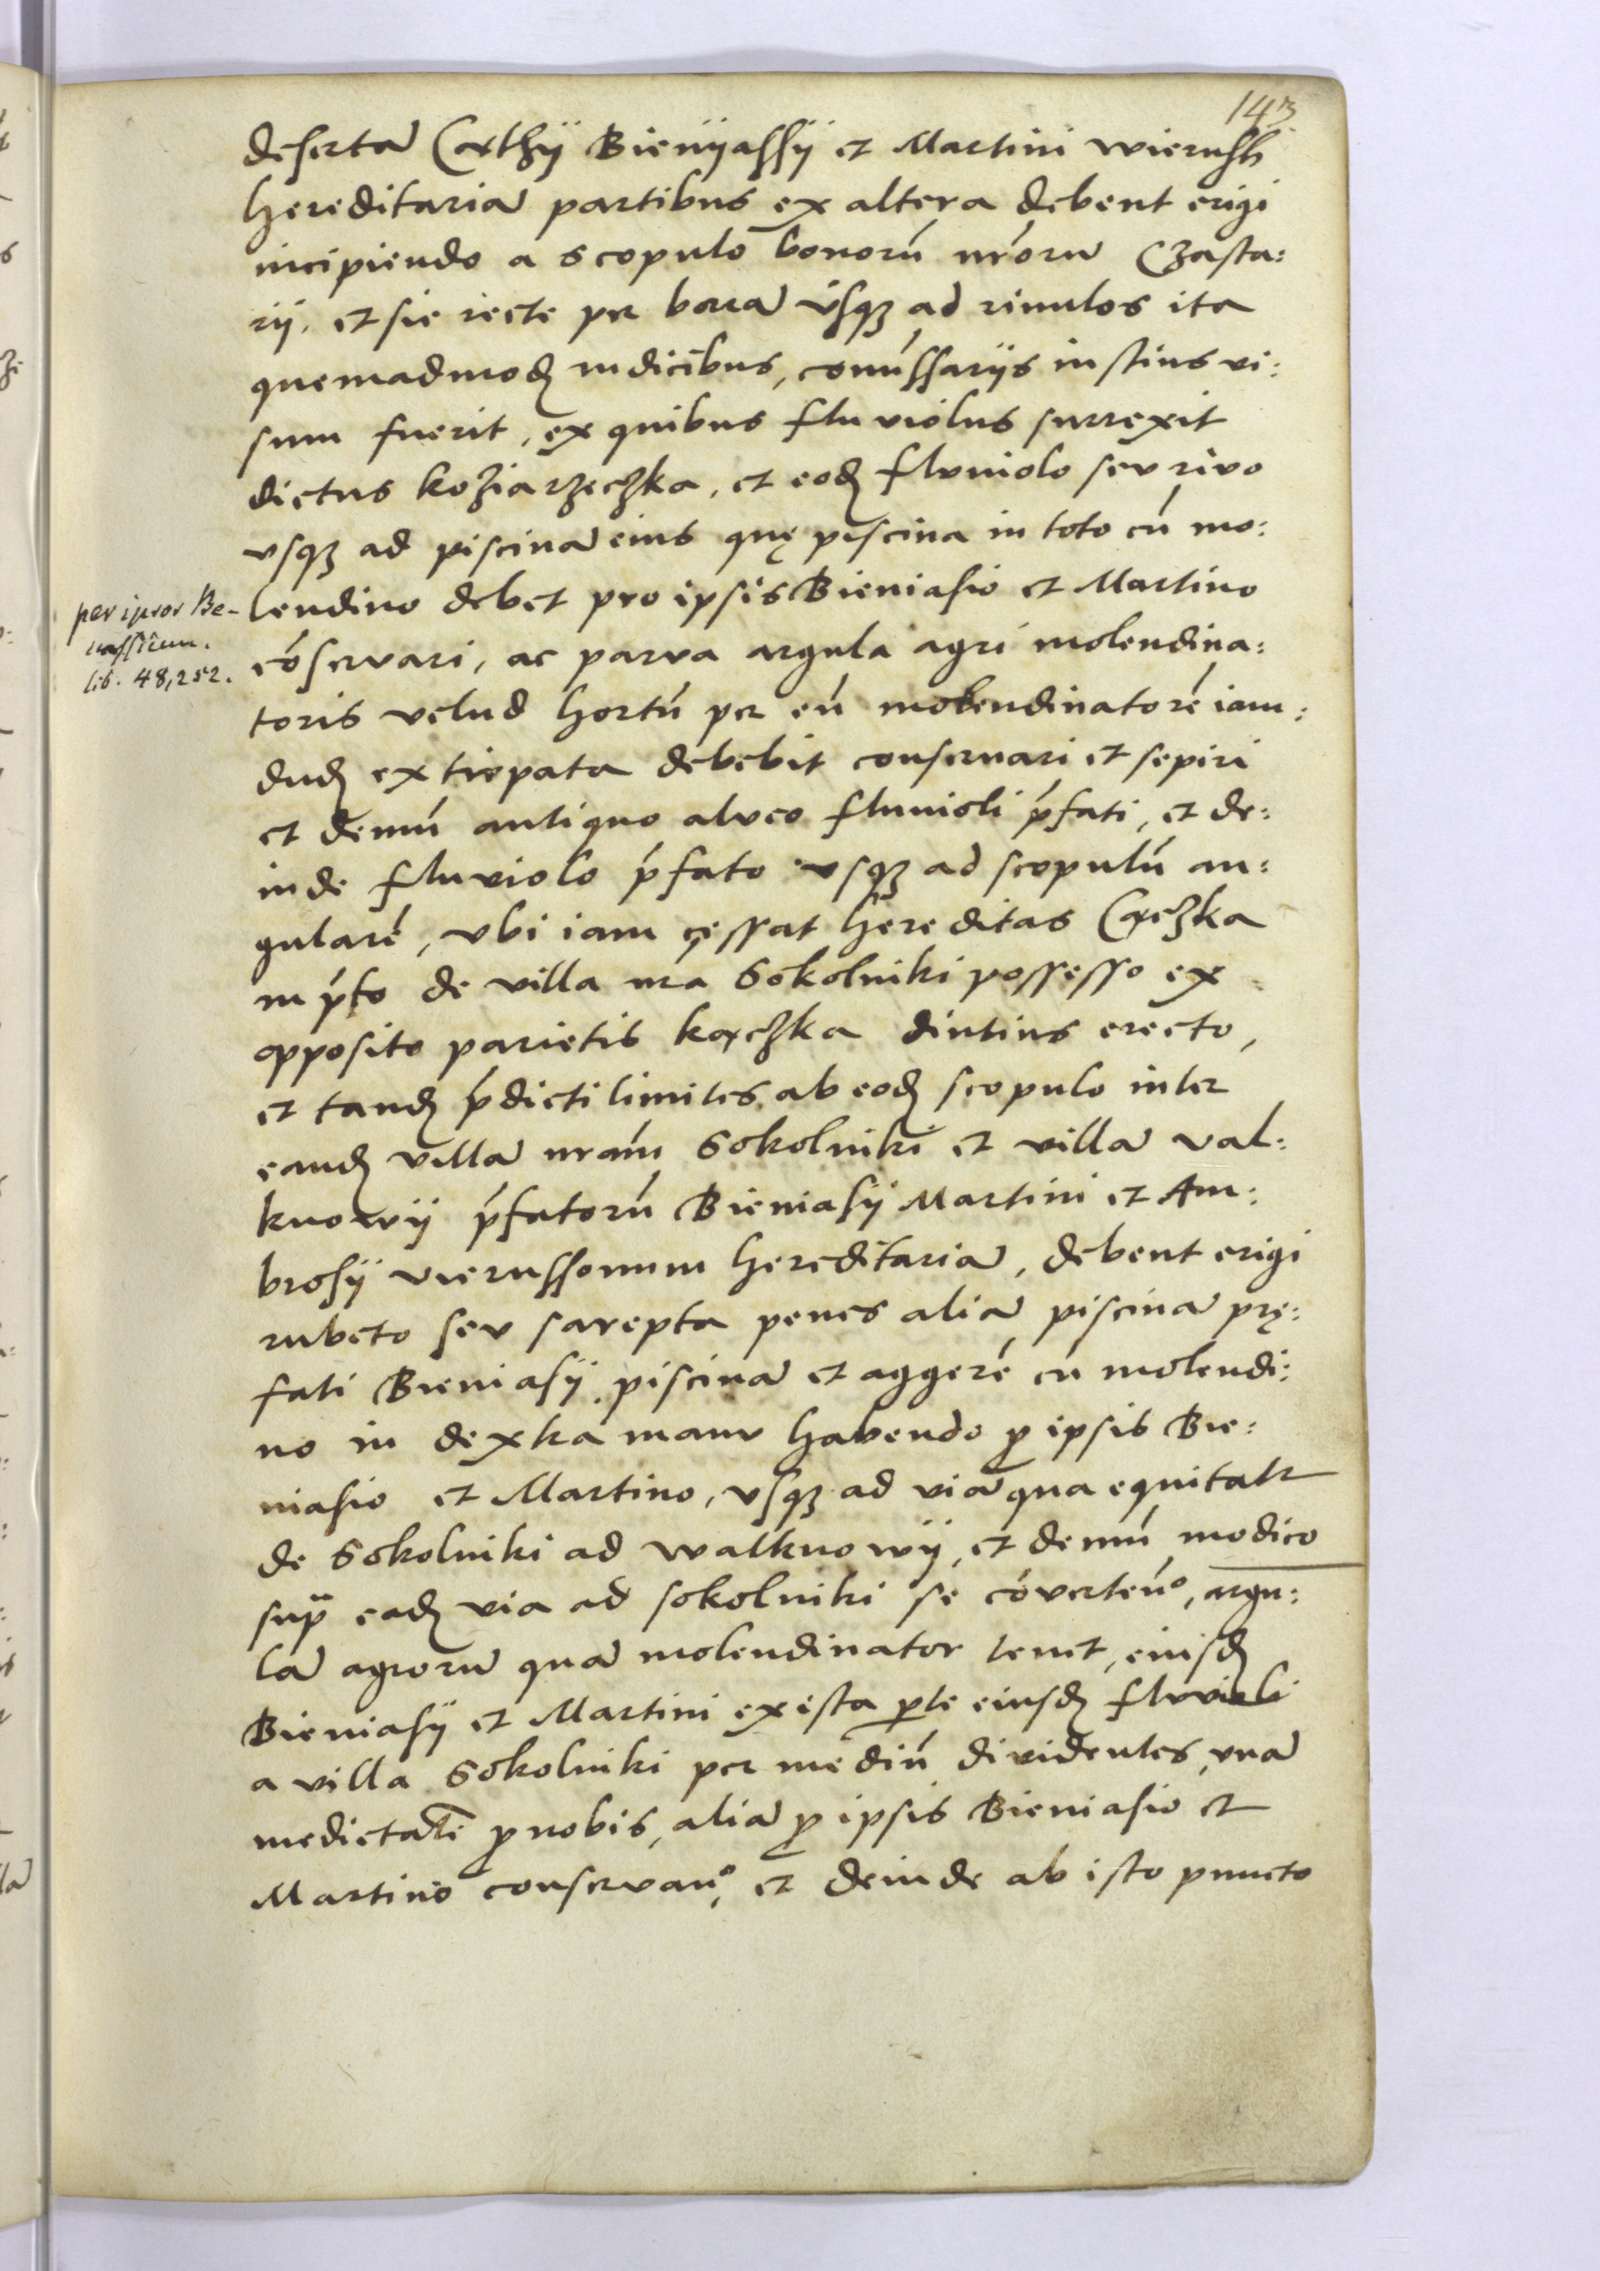 143
desertā Cąthÿ Bienÿassÿ et Martini wierush
hereditariā partibus ex altera debent erigi
incipiendo a scopulo bonorú nŕorū Czasta:
rÿ. et sic recte per borrā vsqȝ ad rivulos ita
quemadmoɖ iudicibus, comissarÿs iustius vi:
sum fuerit, ex quibus fluviolus surrexit
dictus koziarzeczka, et eoɖ fluviolo seu rivo
vsqȝ ad piscinā eius quę piscina in toto cú mo:
lendino debet pro ipsis Bieniasio et Martino
cóservari, ac parva argula agri molendina:
toris velud hortú per eú molendinatoré iam:
duɖ extirpata debebit conservari et sepiri
et demú antiquo alveo fluvioli ṕfati, et de:
inde fluviolo ṕfato vsqȝ ad scopulú an:
gularé, vbi iam cessat hereditas Cączka
in ṕto de villa nŕa Sokolniki possesso ex
opposito parietis kączka diutius erecto,
et tanɖ ṕdicti limites ab eoɖ scopulo inter
eanɖ villā nrám Sokolniki et villā val:
knowÿ ṕfatorú Bieniasÿ Martini et Am:
brosÿ vierussonum hereditariā, debent erigi
rubeto seu sarepta penes aliā piscinā prę:
fati Bieniasÿ piscinā et aggeré cú molendi:
no in dextra manu habendo ꝓ ipsis Bie:
niasio et Martino, vsqȝ ad viā qua equitatr
de Sokolniki ad walknowÿ, et demú modico
sup̄ eaɖ via ad sokolniki se cóvertenº, argu:
lā agrorū quā molendinator tenet, eiusɖ
Bieniasÿ et Martini ex ista ꝑte eiusɖ fluvioli
a villa Sokolniki per mediú dividentes, vnā
medietatē ꝓ nobis, aliā ꝓ ipsis Bieniasio et
Martino conservanº, et deinde ab isto puncto
per ipsor Be-
nassium.
lib. 48, 252.